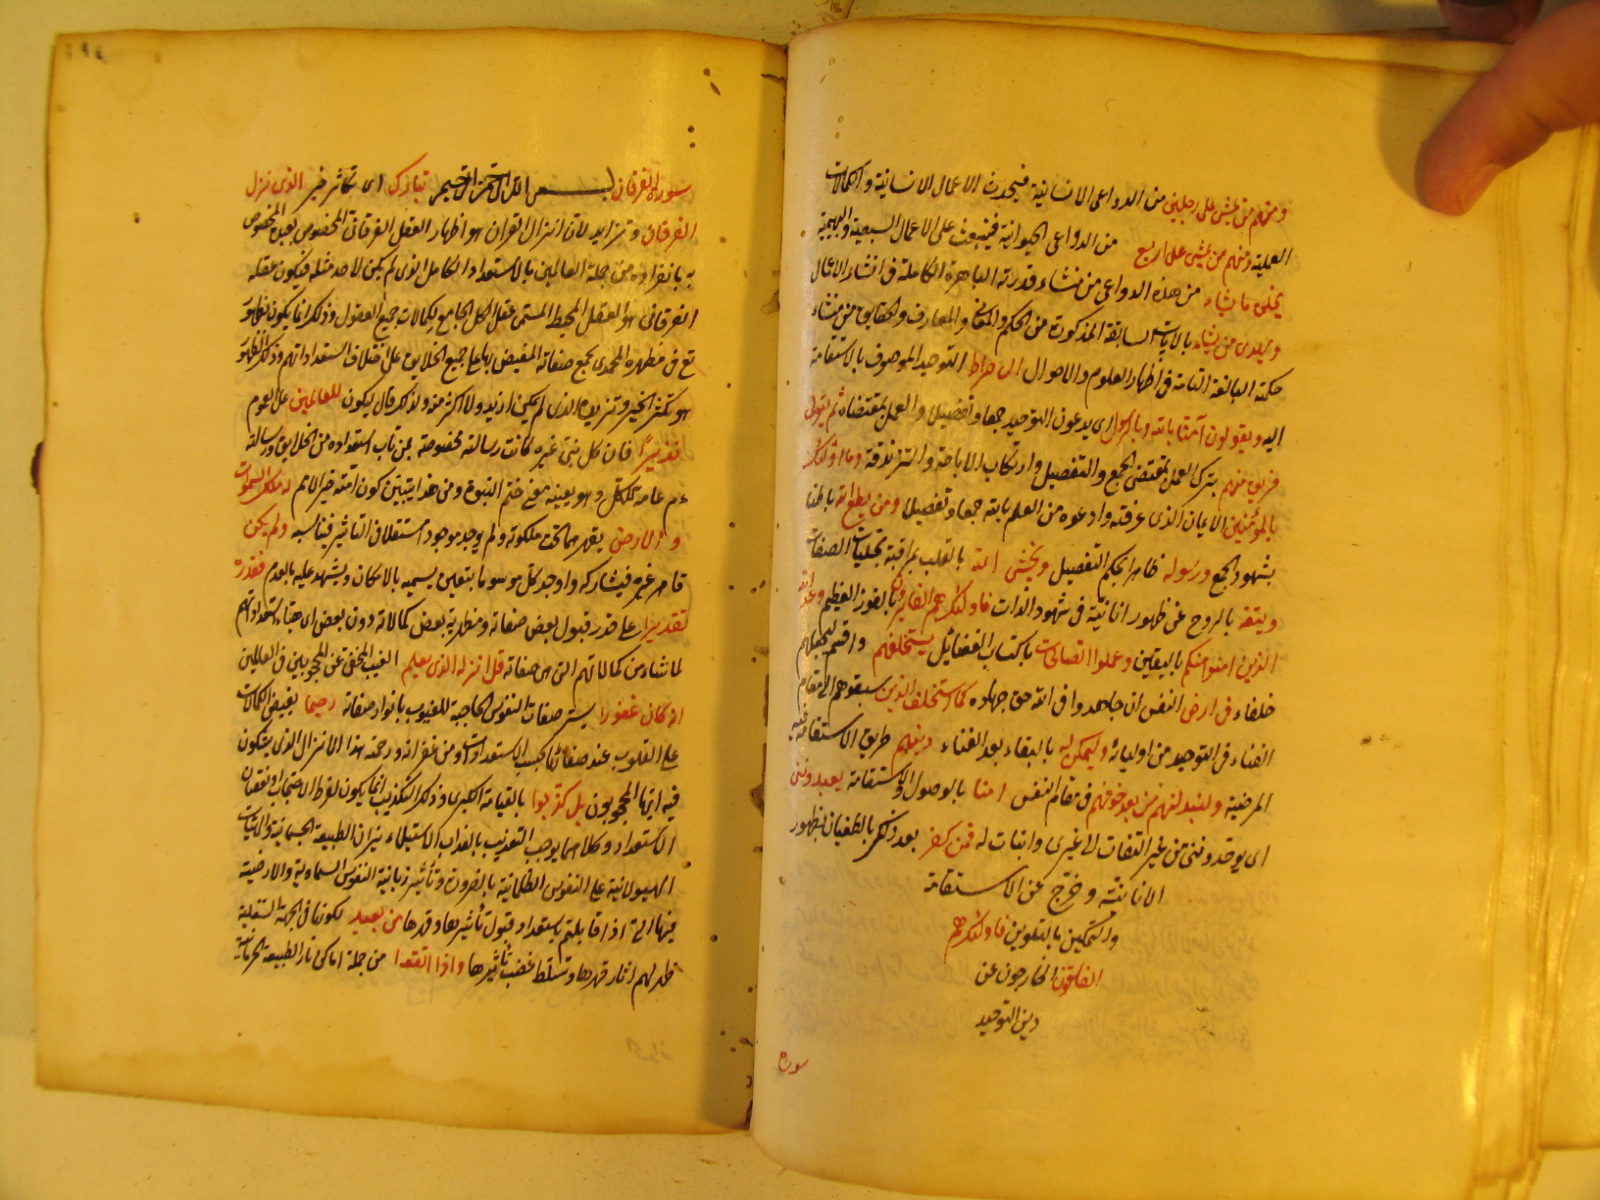 ومنهم من يمشى على رجلين من الدواعى الانسانية فيحدث الاعمال الانسانية والكمالات
العملية ومنهم من يمشى على اربع من الدواعى الحيوانية فينبعث على الاعمال السبعية والبهيمية
يخلق ما يشاء من هذه الدواعى من منشاء قدرته الباهرة الكاملة فى انشاء الاعمال
ويهدى من يشاء بالايات السابقة المذكورة من الحكم والمعانى والمعارف والحقايق من منشاء
حكمته البالغة التامة فى اظهار العلوم والاحوال الى صراط التوحيد الموصوف بالاستقامة
اليه ويقولون آمنا بالله وبالرسول اى يدعون التوحيد جمعا وتفصيلا والعمل بمقتضاه ثم يتولى
فريق منهم بترك العمل بمقتضى الجمع والتفصيل وارتكاب الاباحة والتزندقة وما اولئك
بالمؤمنين الايمان الذى عرفته وادعوه من العلم بالله جمعا وتفصيلا ومن يطع الله باطنا
بشهود الجمع ورسوله ظاهرا بحكم التفصيل ويخش الله بالقلب بمراقبة تجليات الصفات
ويتقه بالروح عن ظهور انانيته فى شهود الذات فاولئك هم الفايزون بالفوز العظيم وعد الله
الذين امنوا منكم باليقين وعملوا الصالحات باكتساب الفضايل يستخلفهم واقسم ليجعلهم
خلفاء فى ارض النفس ان جاهدوا فى الله حق جهاده كما استخلف الذين سبقوهم الى مقام
الفناء فى التوحيد من اوليائه وليمكن له بالبقاء بعد الفناء دينهم طريق الاستقامة فيه
المرضية وليبدلنهم من بعد خوفهم فى مقام النفس امنا بالوصول والاستقامة يعبدوننى
اى يوحدوننى من غير التفات الى غيرى واثبات له فمن كفر بعد ذلك بالطغيان بظهور
الانانية وخرج عن الاستقامة
والتمكين بالتلوين فاولئك هم
الفاسقون الخارجون عن
دين التوحيد
سورة
سورة الفرقان بسم الله الرحمن الرحيم تبارك اى تكاثر خير الذى نزل
الفرقان وتزايد لان انزال الفرقان هو اظهار العقل الفرقانى المخصوص بعبده المخصوص
به بانفراده من جملة العالمين بالاستعداد الكامل الذى لم يكن لاحد مثله فيكون عقله
الفرقانى هو العقل المحيط المسمى عقل الكل الجامع لكمالات جميع العقول وذلك انما يكون بظهوره
تع فى مظهره المحمدى بجميع صفاته المفيض بها على جميع الخلايق على اختلاف استعداداتهم وذلك الظهور
هو تكثر الخير وتزيده الذى لم يكن ازيد ولا اكثر منه ولذلك قال ليكون للعالمين على العموم
نذيرا فان كل نبى غيره كانت رسالته مخصوصة بمن ناسب استعداده من الخلايق ورسالته
ءم عامة للكل وهو بعينه معنى ختم النبوة ومن هذا يتبين كون امته خير الامم له ملك السموات
والارض يقهرهما تحت ملكوته ولم يوجد موجود استقلاله فى التاثير فيناسبه ولم يكن
قاهر غيره فيشاركه واوجد كل موسوما بتعين يسميه بالامكان ويشهد عليه بالعدم فقدره
تقديرا على قدر قبول بعض صفاته ومظهرية بعض كمالاته دون بعض اى هيأ استعداداتهم
لما شاء من كمالاتهم التى هى صفاته قل انزله الذى يعلم الغيب المخفى عن المحجوبين فى العالمين
انه كان غفورا يستر صفات النفوس الحاجبة للغيوب بانوار صفاته رحيما يفيض الكمالات
على القلوب عند صفائها بحسب الاستعدادات ومن غفرانه ورحمته هذا الانزال الذى يشكون
فيه ايها المحجوبون بل كذبوا بالقيامة الكبرى وذلك التكذيب انما يكون لفرط الاحتجاب او نقصان
الاستعداد وكلاهما يوجب التعذيب بالعذاب كاستيلاء نيران الطبيعة الجسمانية والهيئات
الهيولانية على النفوس الظلمانية بالضرورة وتأثير زبانية النفوس السماوية والارضية
فيها التى اذا قابلتهم باستعداد قبول تأثيرها وقهرها من بعيد لكونها فى الجهة السفلية
ظهر لهم اثار قهرها وتسلط غضب تأثيرها واذا القوا من جملة اماكن نار الطبيعة الحرمانية